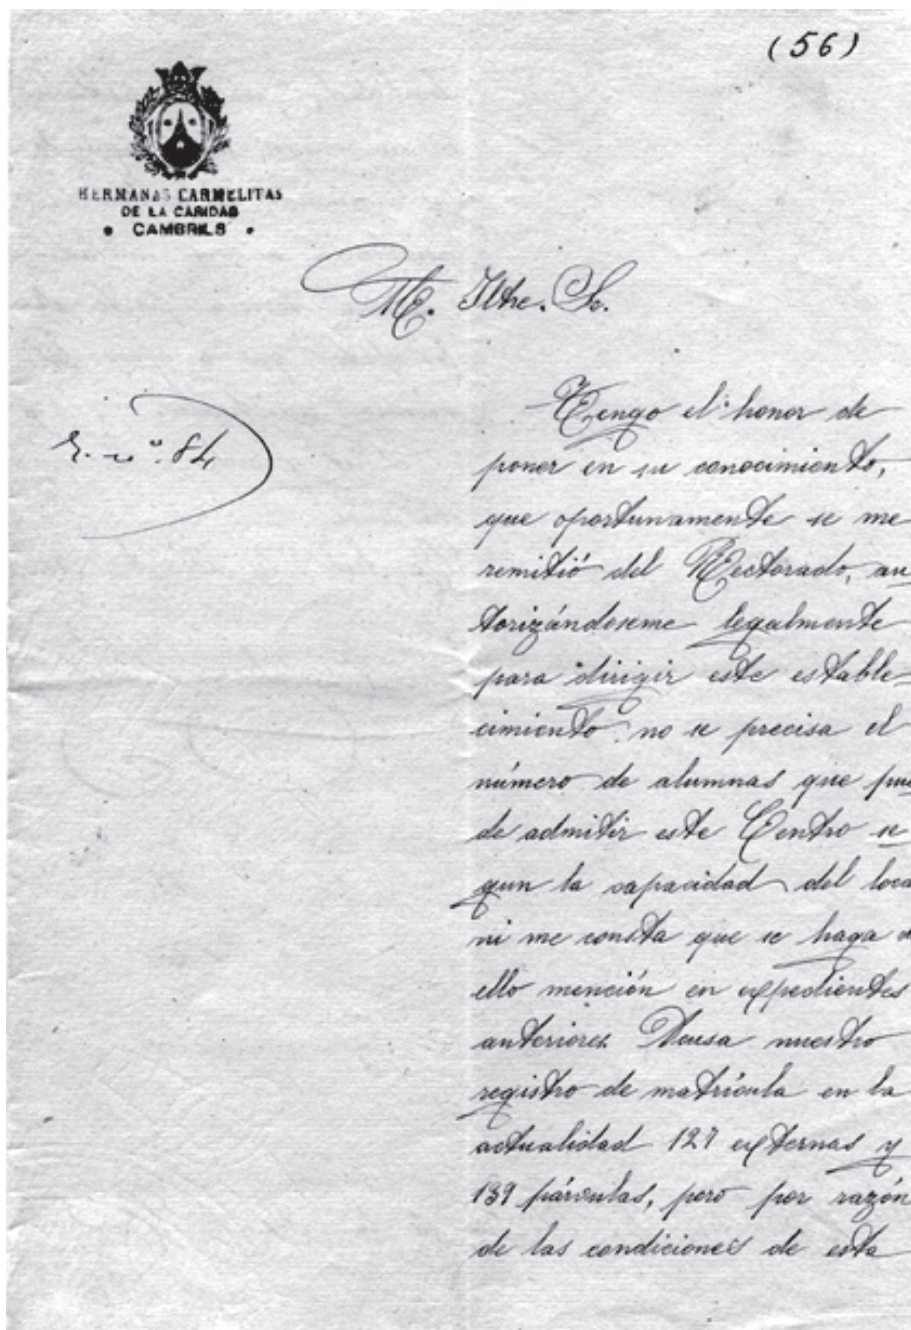 (56)
HERMANAS CARMELITAS
DE LA CARIDAD
• CAMBRILS •
M. Iltre. Sr.
Tengo el honor de
poner en su conocimiento,
que oportunamente se me
remitió del Rectorado, au
torizándoseme legalmente
para dirigir este estable-
cimiento no se precisa el
número de alumnas que pue
de admitir este Centro se
gun la capacidad del loca
ni me consta que se haga d
ello mención en expedientes
anteriores. Acusa nuestro
registro de matrícula en la
actualidad 127 externas y
139 párvulas, pero por razón
de las condiciones de esta
nº. 84